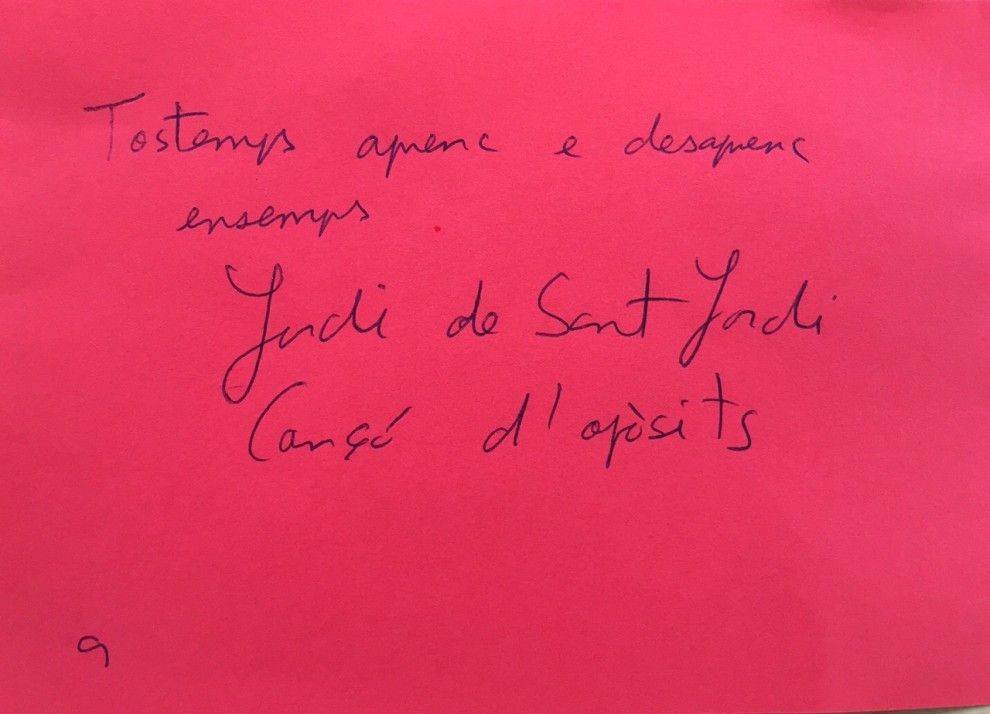 Tostemps aprenc e desaprenc
ensemps
Jordi de Sant Jordi
Cançó d'opòsits
9